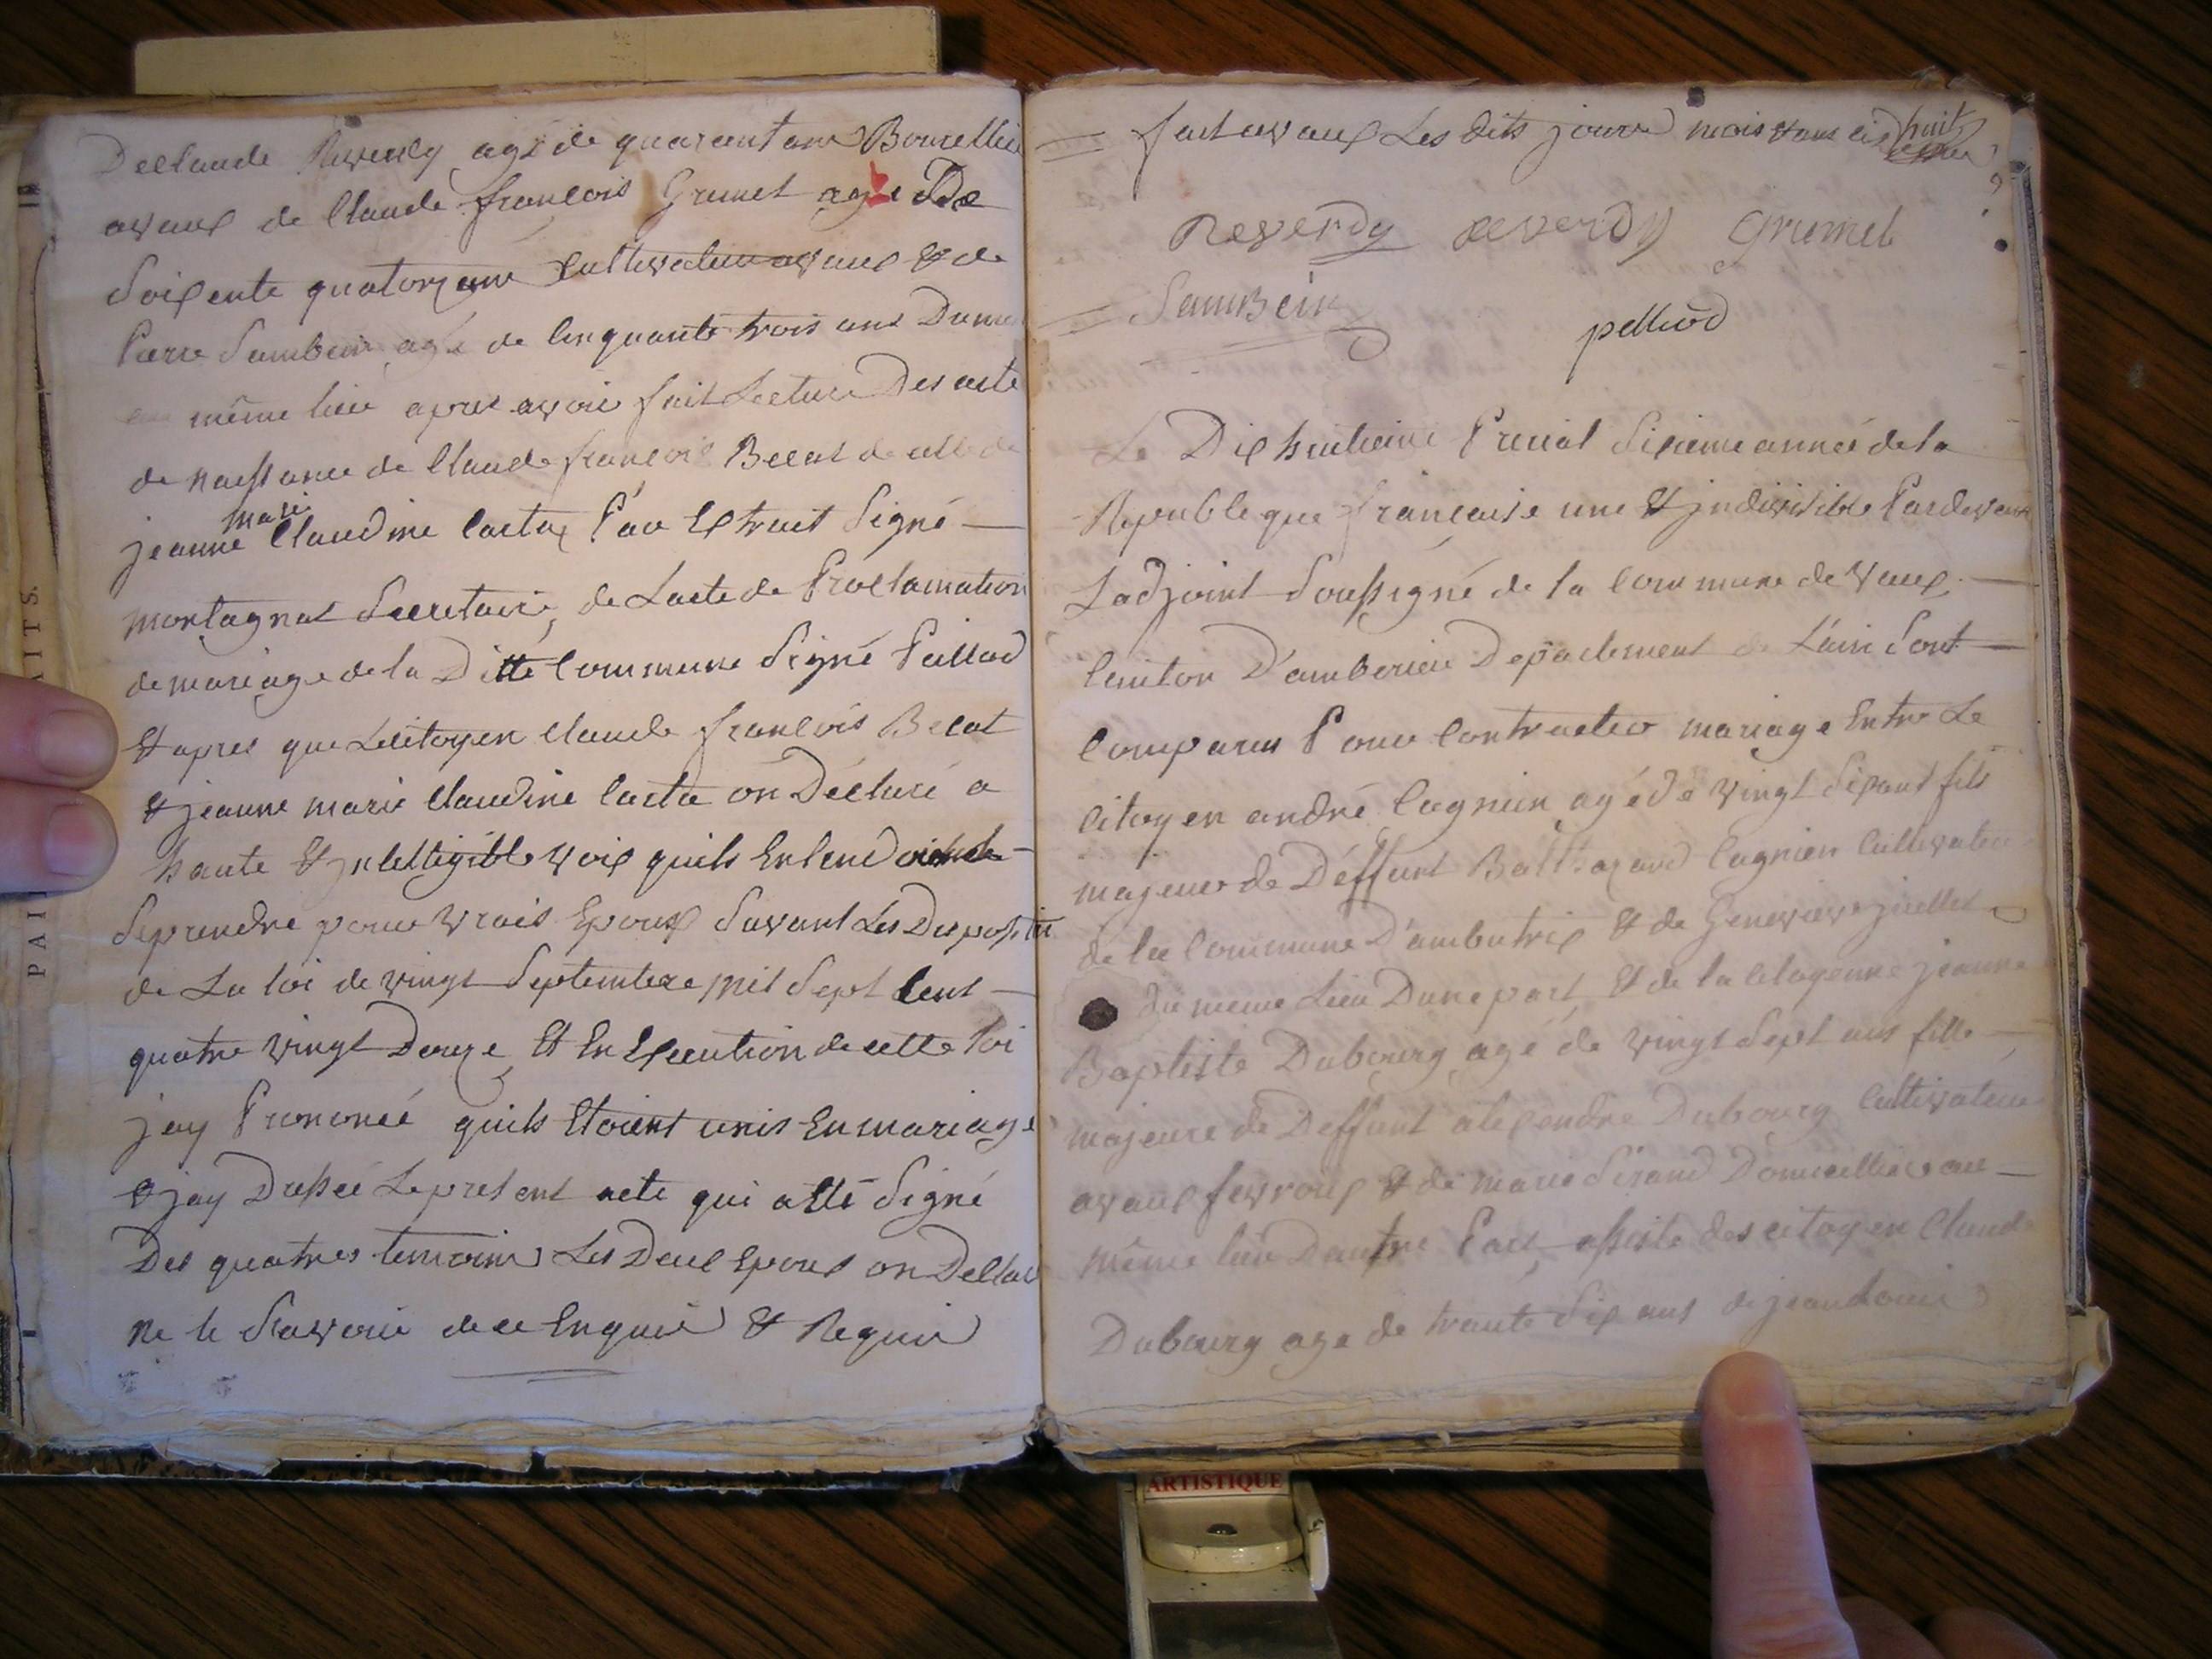 De Claude Reverdy agé de quarant ans Bourellier
avaux de Claude françois Grumet agé De
Soixente quatorz ans Cultivateur avaux & de
Pierre Sambein agé de Cinquante trois ans Dume
même lieu apres avoir fait Lecture Des acte
de naissance de Claude françois Becat de celle de
marie
jeanne Claudine Carta Par Extrait Signé
montagnat Secretaire, de Lacte de Proclamation
de mariage de la Ditte Commune Signé Paillod
& apres que Lecitoyen Claude françois Becat
& jeanne marie Claudine Carta on Declaré a
haute & jntelligible voix quils Entendoient
Seprendre pour vrais Epoux Suvant Les Dispositi
de La loi de vingt Septembre mil Sept Cent
quatre vingt Douze, Et En Execution de cette loi
jay Prononcé quils Etoient unis En mariage
& jay Dressé Lepresent acte qui a Eté Signé
Des quatres temoins Les Deux Epoux on Dellaré
ne le Savoir de ce Enquis & Requis
fait avaux Les dits jours mois & ans huit
Reverdy Reverdy Grumet
SamBein
pelliod
Le Dix huitieme Prerial Sixieme année de la
Republeque françaisse une & jndivisible Pardevant
Ladjoint Soussigné de la Commune de vaux
Canton D'amberieu Departement de L'ain Sont
Comparus Pour Contracter mariage Entre Le
Citoyen andré Cagnin agé de vingt Sixans fils
majeur de Deffunt Balthazard Cagnien Cultivateur
de la Commune D'ambutrix & de Genevieve juillet
du meme Lieu Dune part & de la Citoyenne jeanne
Baptiste Dubourg agé de vingt Sept ans fille
majeure de Deffunt alexendre Dubourg Cultivateur
avaux fevroux & de marie Sirand Domicillies au
même lieu Dautre Part, assisté des citoyen Claude
Dubourg age de trante Six ans de jean Louis